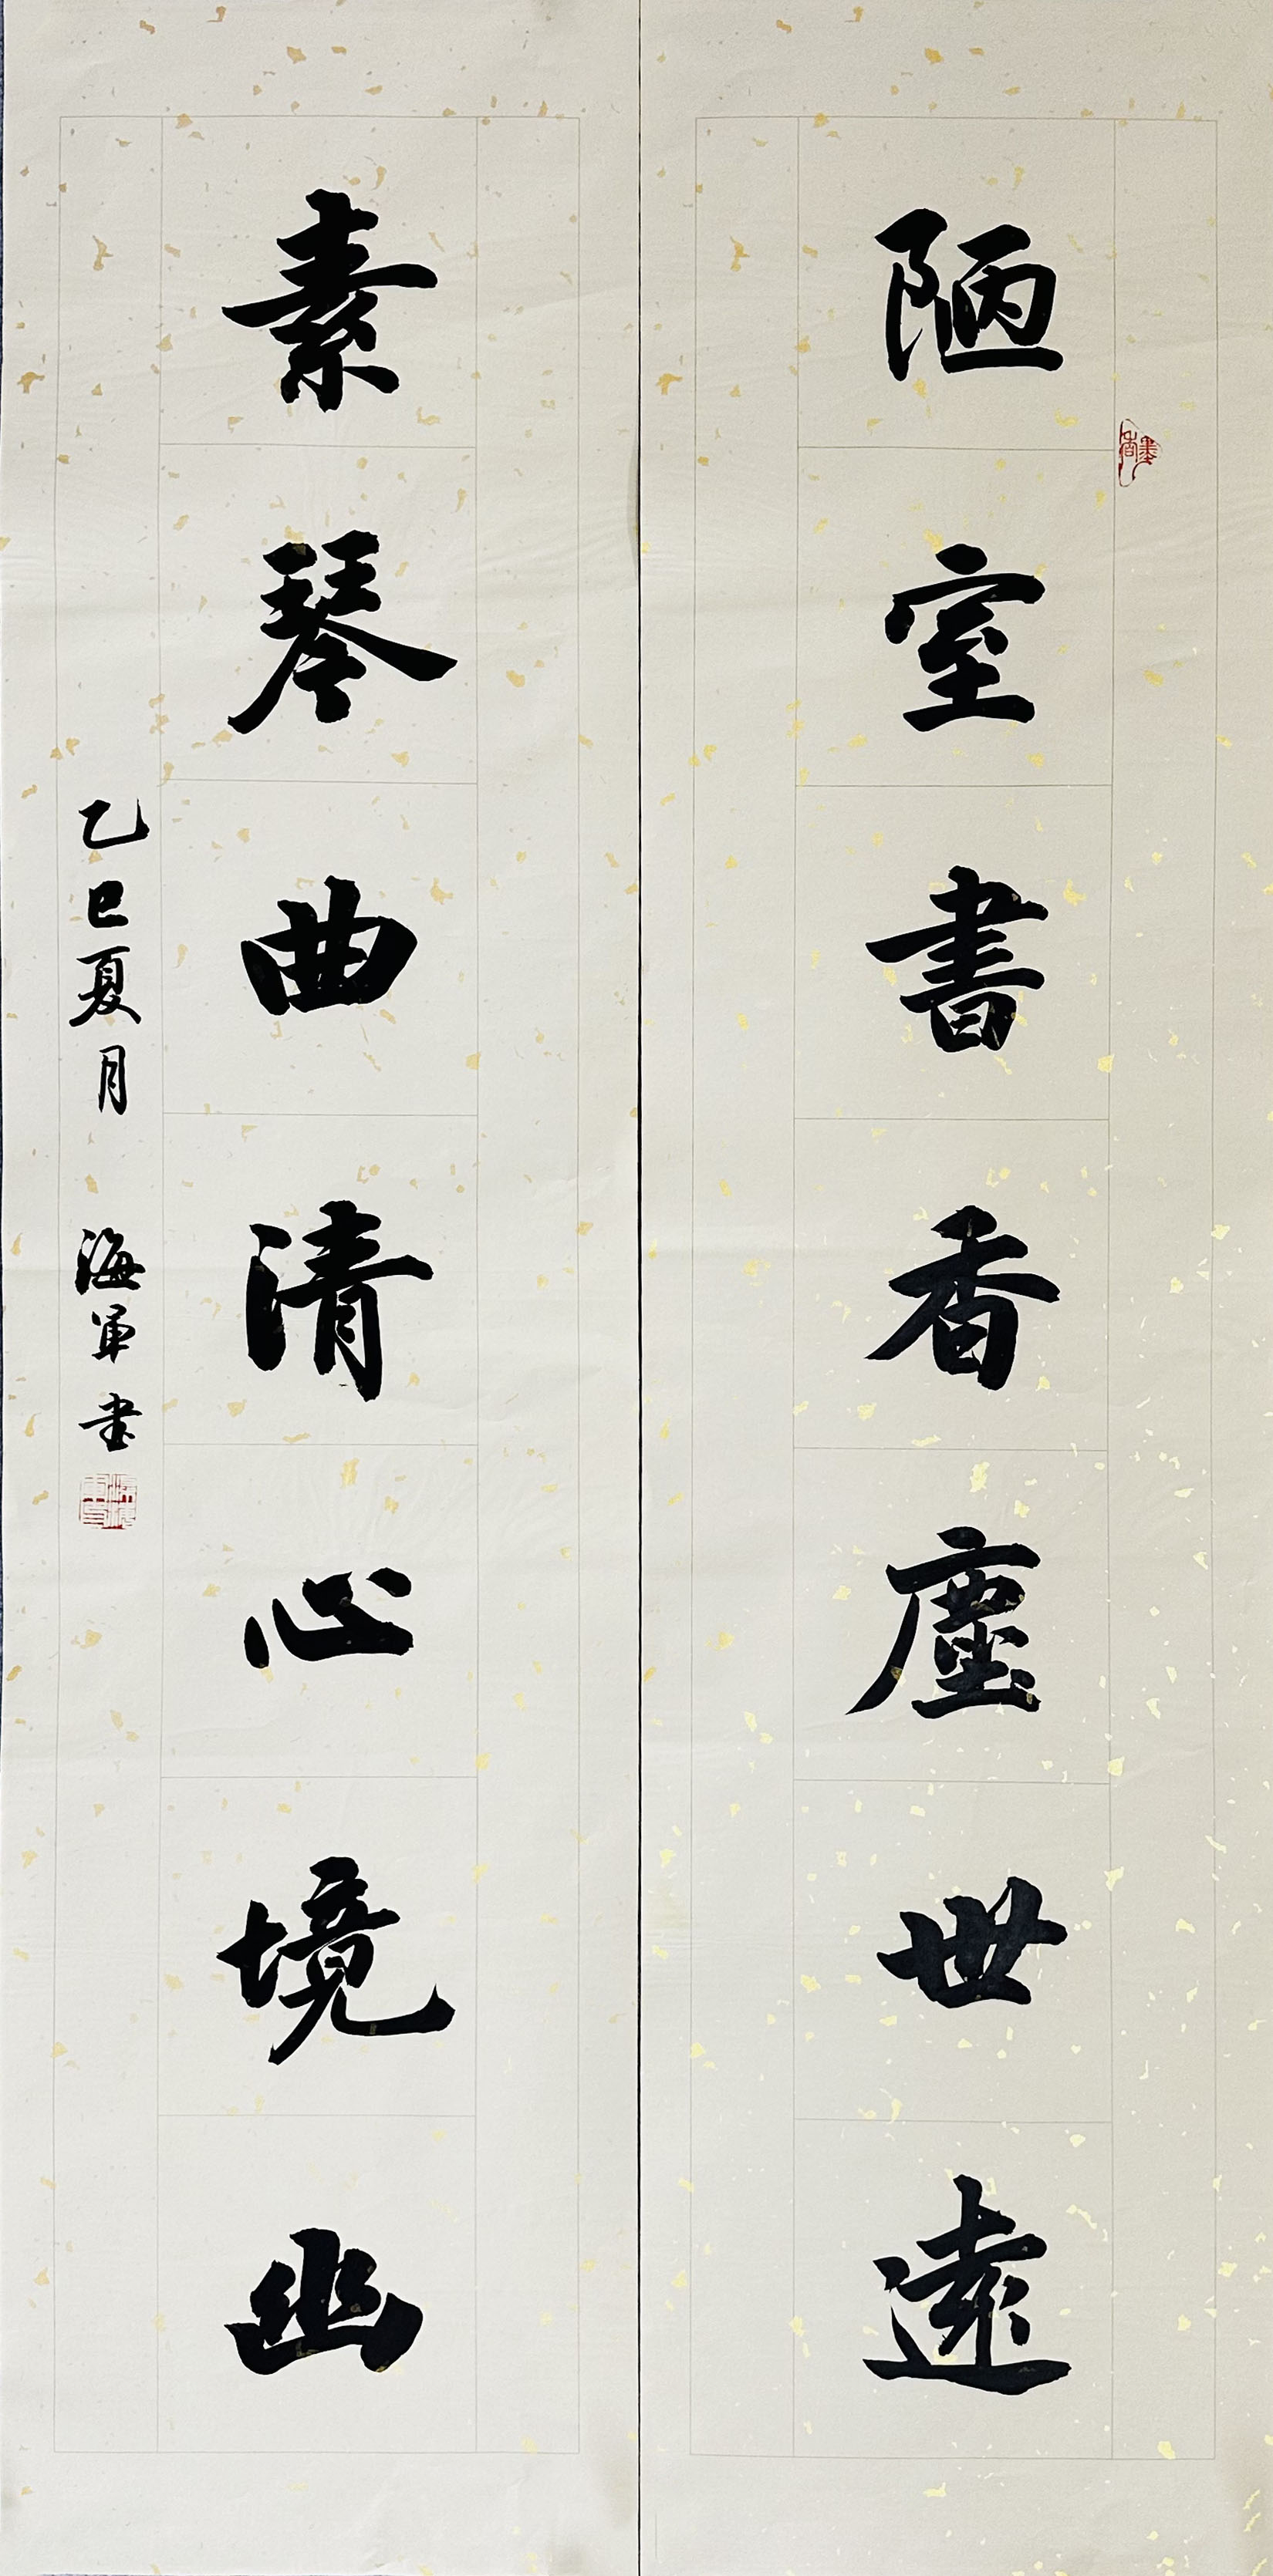 陋室書香塵世遠
墨香
素琴曲清心境幽
乙巳夏月 海軍書